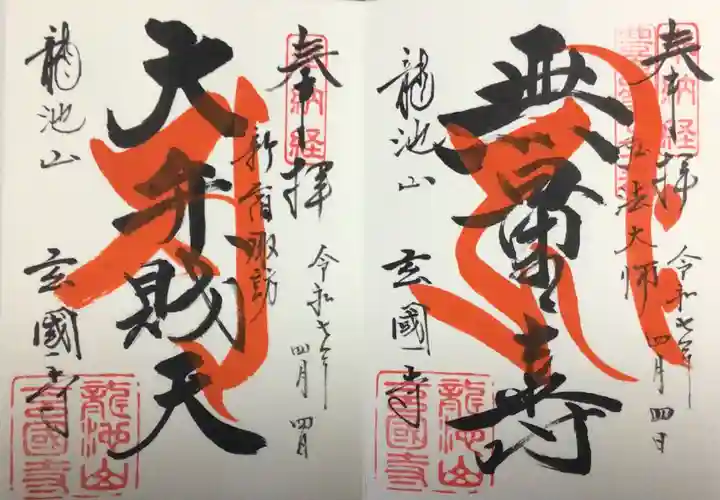 奉拝
弘法大師
令和七年
四月四日
無量壽
龍池山
玄國寺
奉拝
新宿諏訪
令和七年
四月四日
大弁財天
龍池山
玄國寺
奉納経
龍池山
玄國寺
奉納経
龍池山
玄國寺